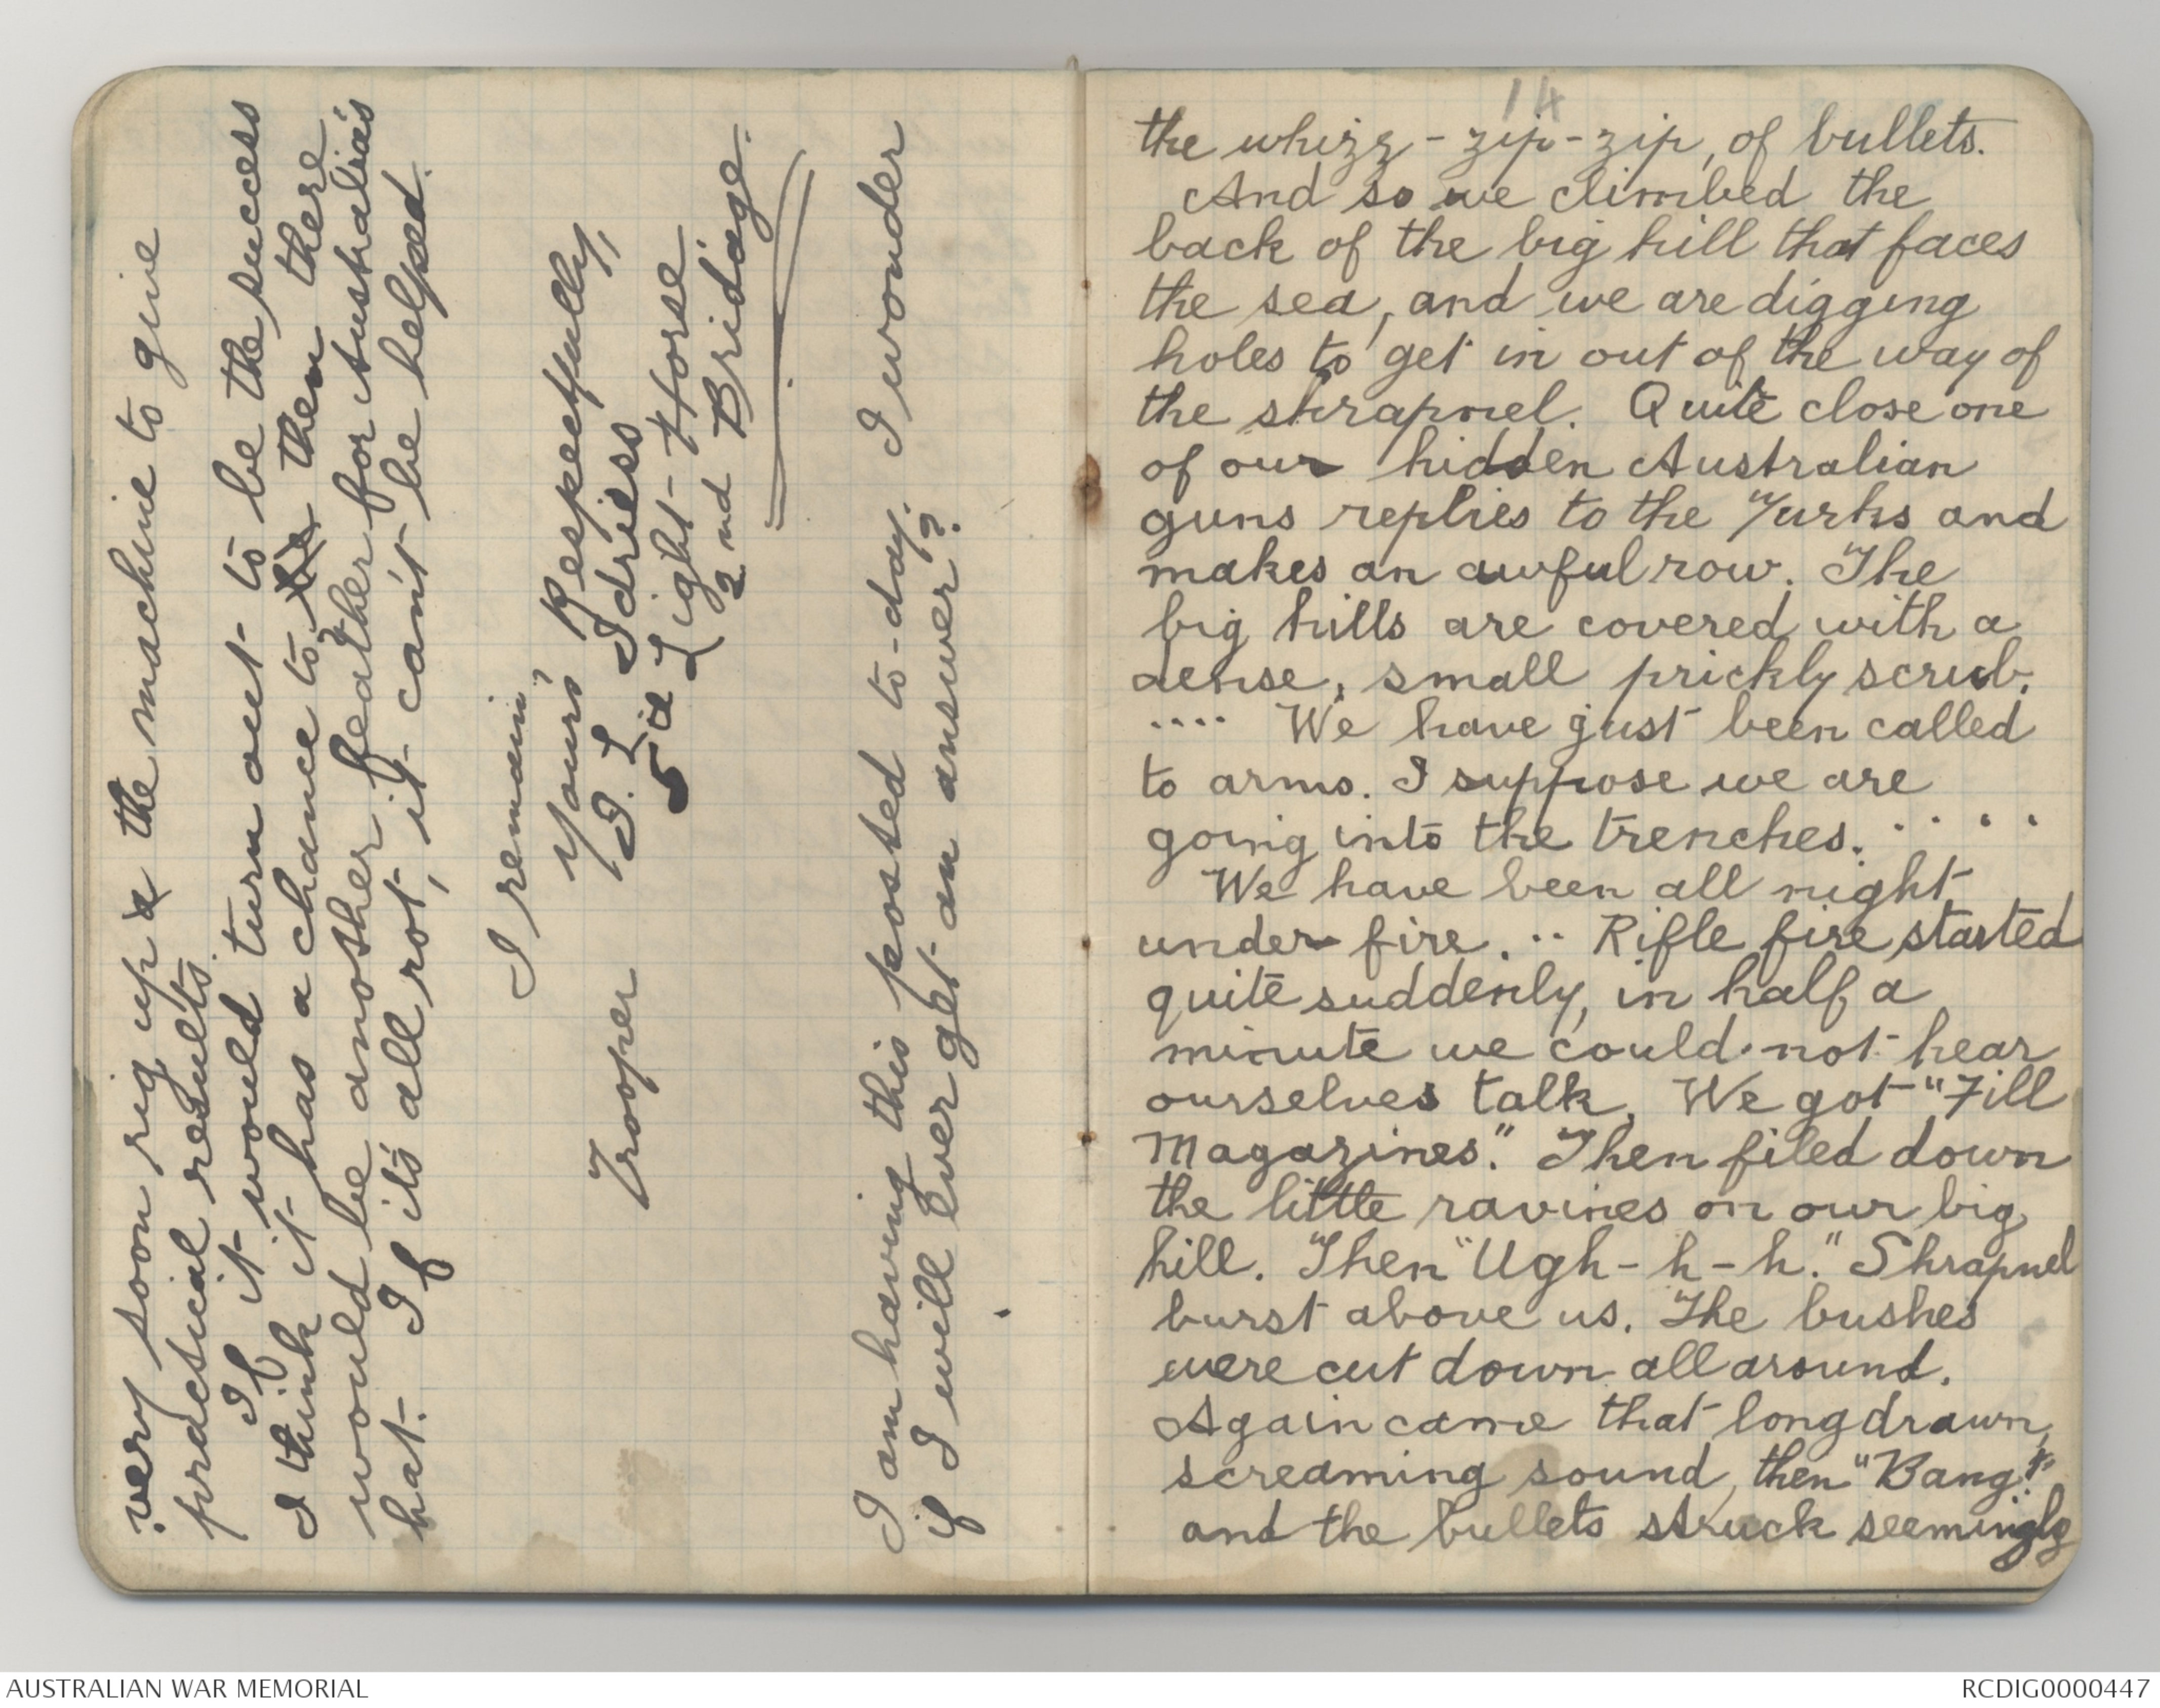 very soon rig up a the machine to give
practical results.
If it would turn out to be the success
I think it has a chance to be then there
would be another feather for Australia's
hat. If it's all rot, it can't be helped.
I remain,
Yours Respectfully,
Trooper I. L. Idriess
5th Light-Horse.
2nd Bridage.
I am having this posted to-day. I wonder
if I will ever get an answer?
14
the whizz - zip - zip, of bullets.
And so we climbed the
back of the big hill that faces
the sea, and we are digging
holes to get in out of the way of
the shrapnel. Quite close one
of our hidden Australian
guns replies to the Turks and
makes an awful row. The
big hills are covered with a
dense, small prickly scrub.
.... We have just been called
to arms. I suppose we are
going into the trenches. ....
We have been all night
under fire. .. Rifle fire started
quite suddenly, in half a
minute we could not hear
ourselves talk. We got "Fill
Magazines." Then filed down
the little ravines on our big
hill. Then "Ugh - h - h." Shrapnel
burst above us. The bushes
were cut down all around.
Again came that long drawn,
screaming sound, then "Bang!"
and the bullets struck seemingly
AUSTRALIAN WAR MEMORIAL
RCDIG0000447